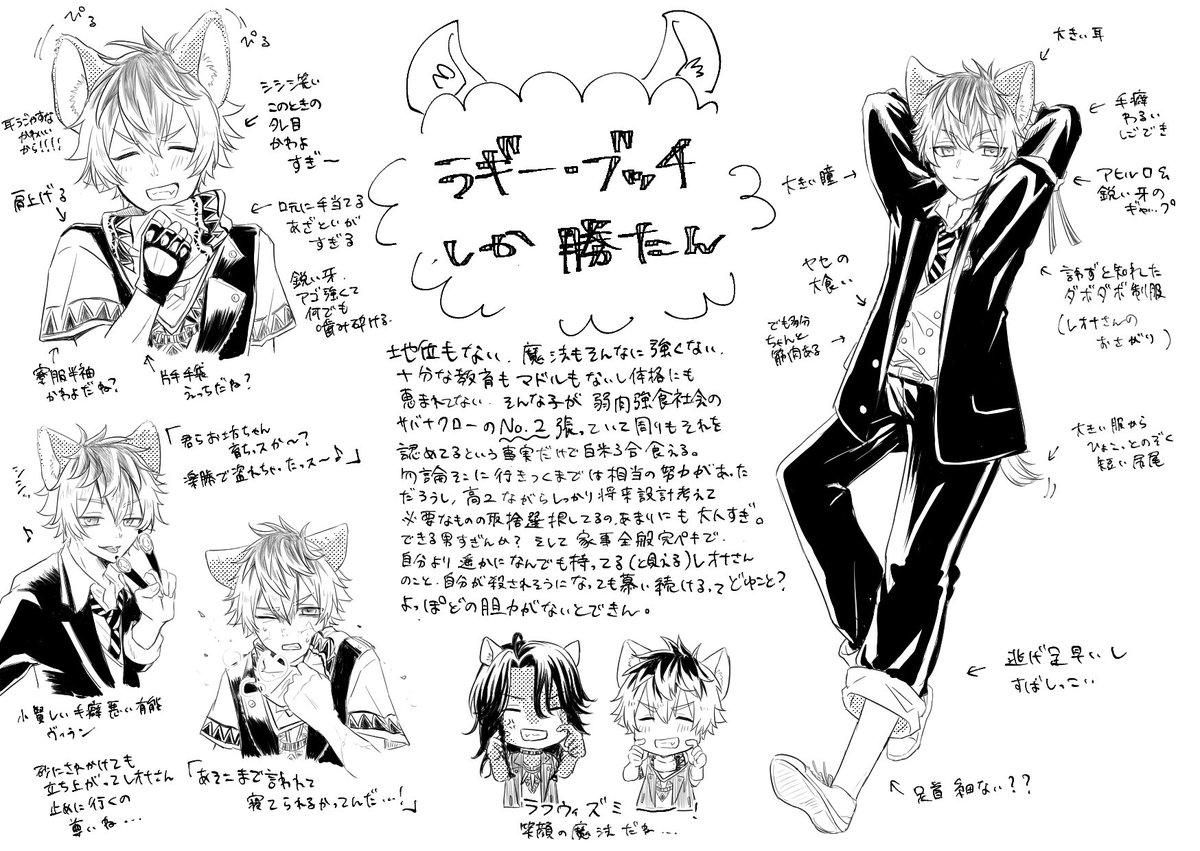 ぴる
ぴる
シシシ笑い
このときの
タレ目
かわよ
すぎ〜
耳うごかすな
かわいい
から!!!!
肩上げる
口元に手当てる
あざといが
すぎる
鋭い牙.
アゴ強くて
何でも
噛み砕ける.
寮服半袖
かわよだね?
片手手袋
えっちだね?
ラギー・ブッチ
しか勝たん
大きい耳
手癖
わるい
しごでき
大きい瞳
アヒル口&
鋭い牙の
ギャップ
ヤセの
大食い
言わずと知れた
ダボダボ制服
(レオナさんの
おさがり)
でも多分
ちゃんと
筋肉ある
大きい服から
ひょこっとのぞく
短い尻尾
逃げ足早いし
すばしっこい
足首細ない??
地位もない.魔法もそんなに強くない.
十分な教育もマドルもないし体格にも
恵まれてない.そんな子が弱肉強食社会の
サバナクローのNo.2張っていて周りもそれを
認めてるという事実だけで白米3合食える。
勿論そこに行きつくまでは相当の努力があった
だろうし,高2ながらしっかり将来設計考えて
必要なものの取捨選択してるの,あまりにも大人すぎ。
できる男すぎんか?そして家事全般完ペキで.
自分より遥かになんでも持ってる(と見える)レオナさん
のこと,自分が殺されそうになっても慕い続けるってどゆこと?
よっぽどの胆力がないとできん。
「君らお坊ちゃん
育ちッスか〜?
楽勝で盗れちゃたッス〜♪」
シシッ
♪
小賢しい手癖悪い有能
ヴィラン
砂にされかけても
立ち上がってレオナさん
止めに行くの
尊いね...
「あそこまで言われて
寝てられるかってんだ...!」
ラフウィズミー!
笑顔の魔法だね...